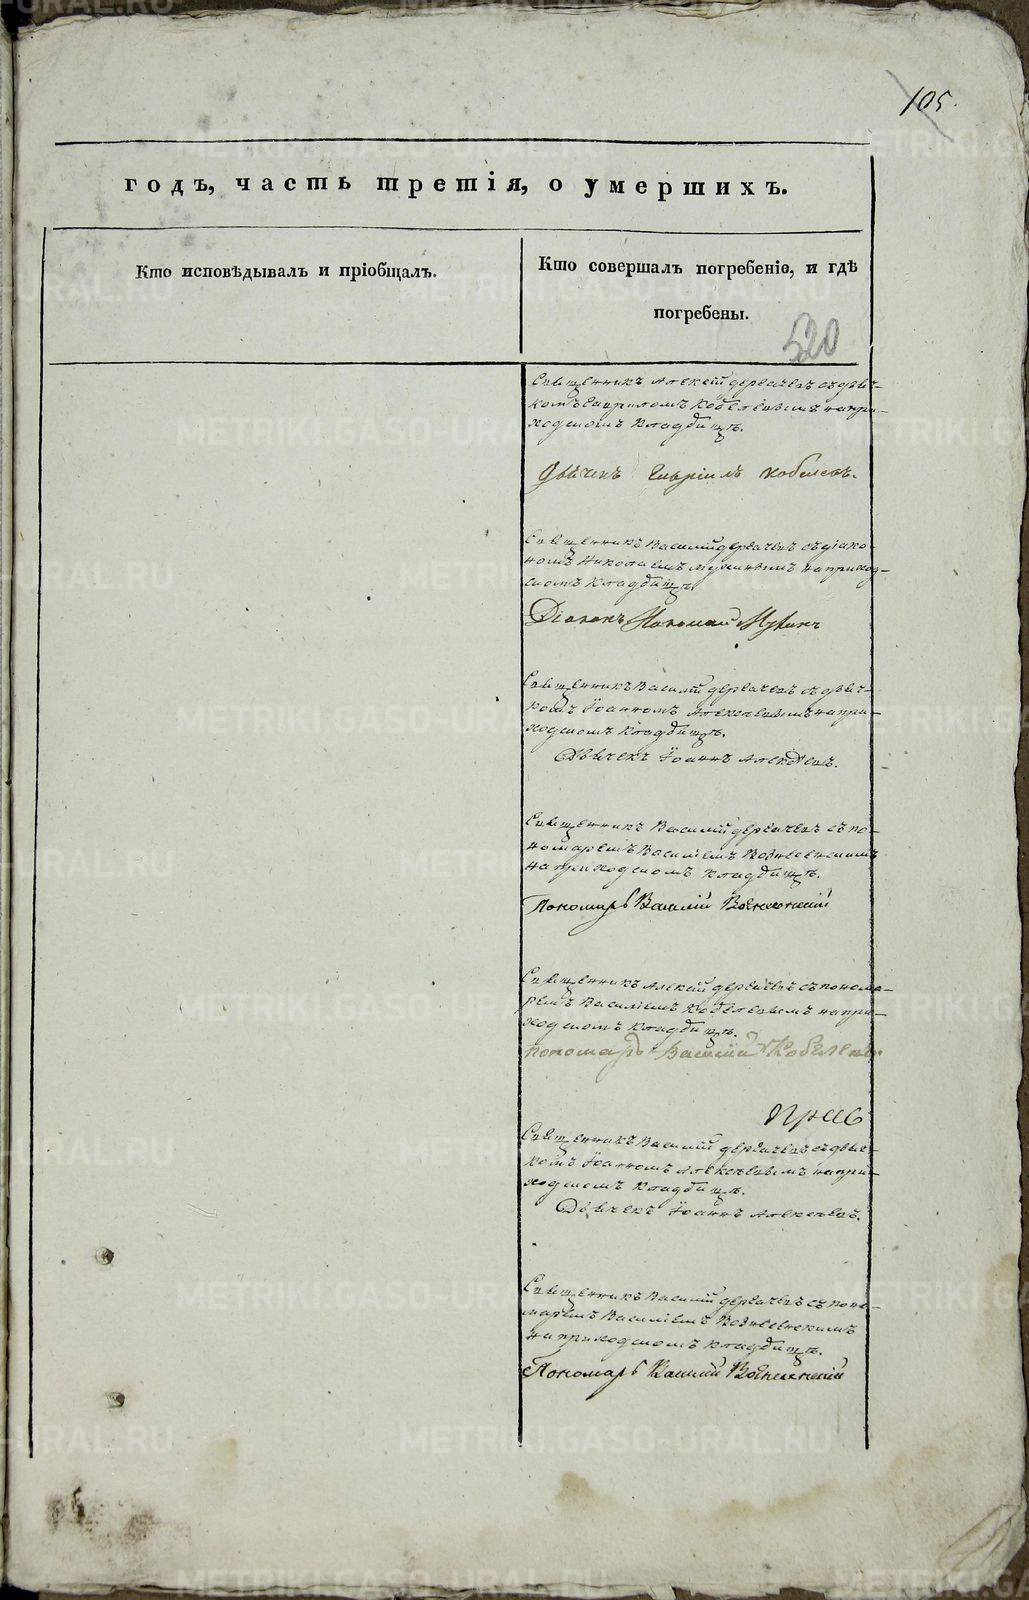 105.
годъ, часть третія, о умершихъ.
Кто исповѣдывалъ и пріобщалъ.
Кто совершалъ погребеніе, и гдѣ
погребены.
520
Священникъ Алексій Дергачевъ съ дьяч-
комъ Гавриломъ Кобелевымъ на при-
ходскомъ кладбищѣ.
Дьячекъ Гавріилъ Кобелевъ.
Священникъ Василій Дергачевъ съ діако-
номъ Николаемъ на приход-
скомъ кладбищѣ.
Діаконъ Николай
Священникъ Василій Дергачевъ съ дьяч-
комъ Іоанномъ Алексѣевымъ на при-
ходскомъ кладбищѣ.
Дьячекъ Іоаннъ Алексѣевъ.
Священникъ Василій Дергачевъ съ по-
номаремъ Василіемъ Вознесенскимъ
на приходскомъ кладбищѣ.
Пономарь Василій Вознесенскій
Священникъ Алексій Дергачевъ съ понома-
ремъ Василіемъ Кобелевымъ на при-
ходскомъ кладбищѣ.
пономарь Василій Кобелевъ.
Священникъ Василій Дергачевъ съ дьяч-
комъ Іоанномъ Алексѣевымъ на при-
ходскомъ кладбищѣ.
Дьячекъ Іоаннъ Алексѣевъ.
Священникъ Василій Дергачевъ съ поно-
маремъ Василіемъ Вознесенскимъ
на приходскомъ кладбищѣ.
Пономарь Василій Вознесенскій
METRIKI.GASO-URAL.RU